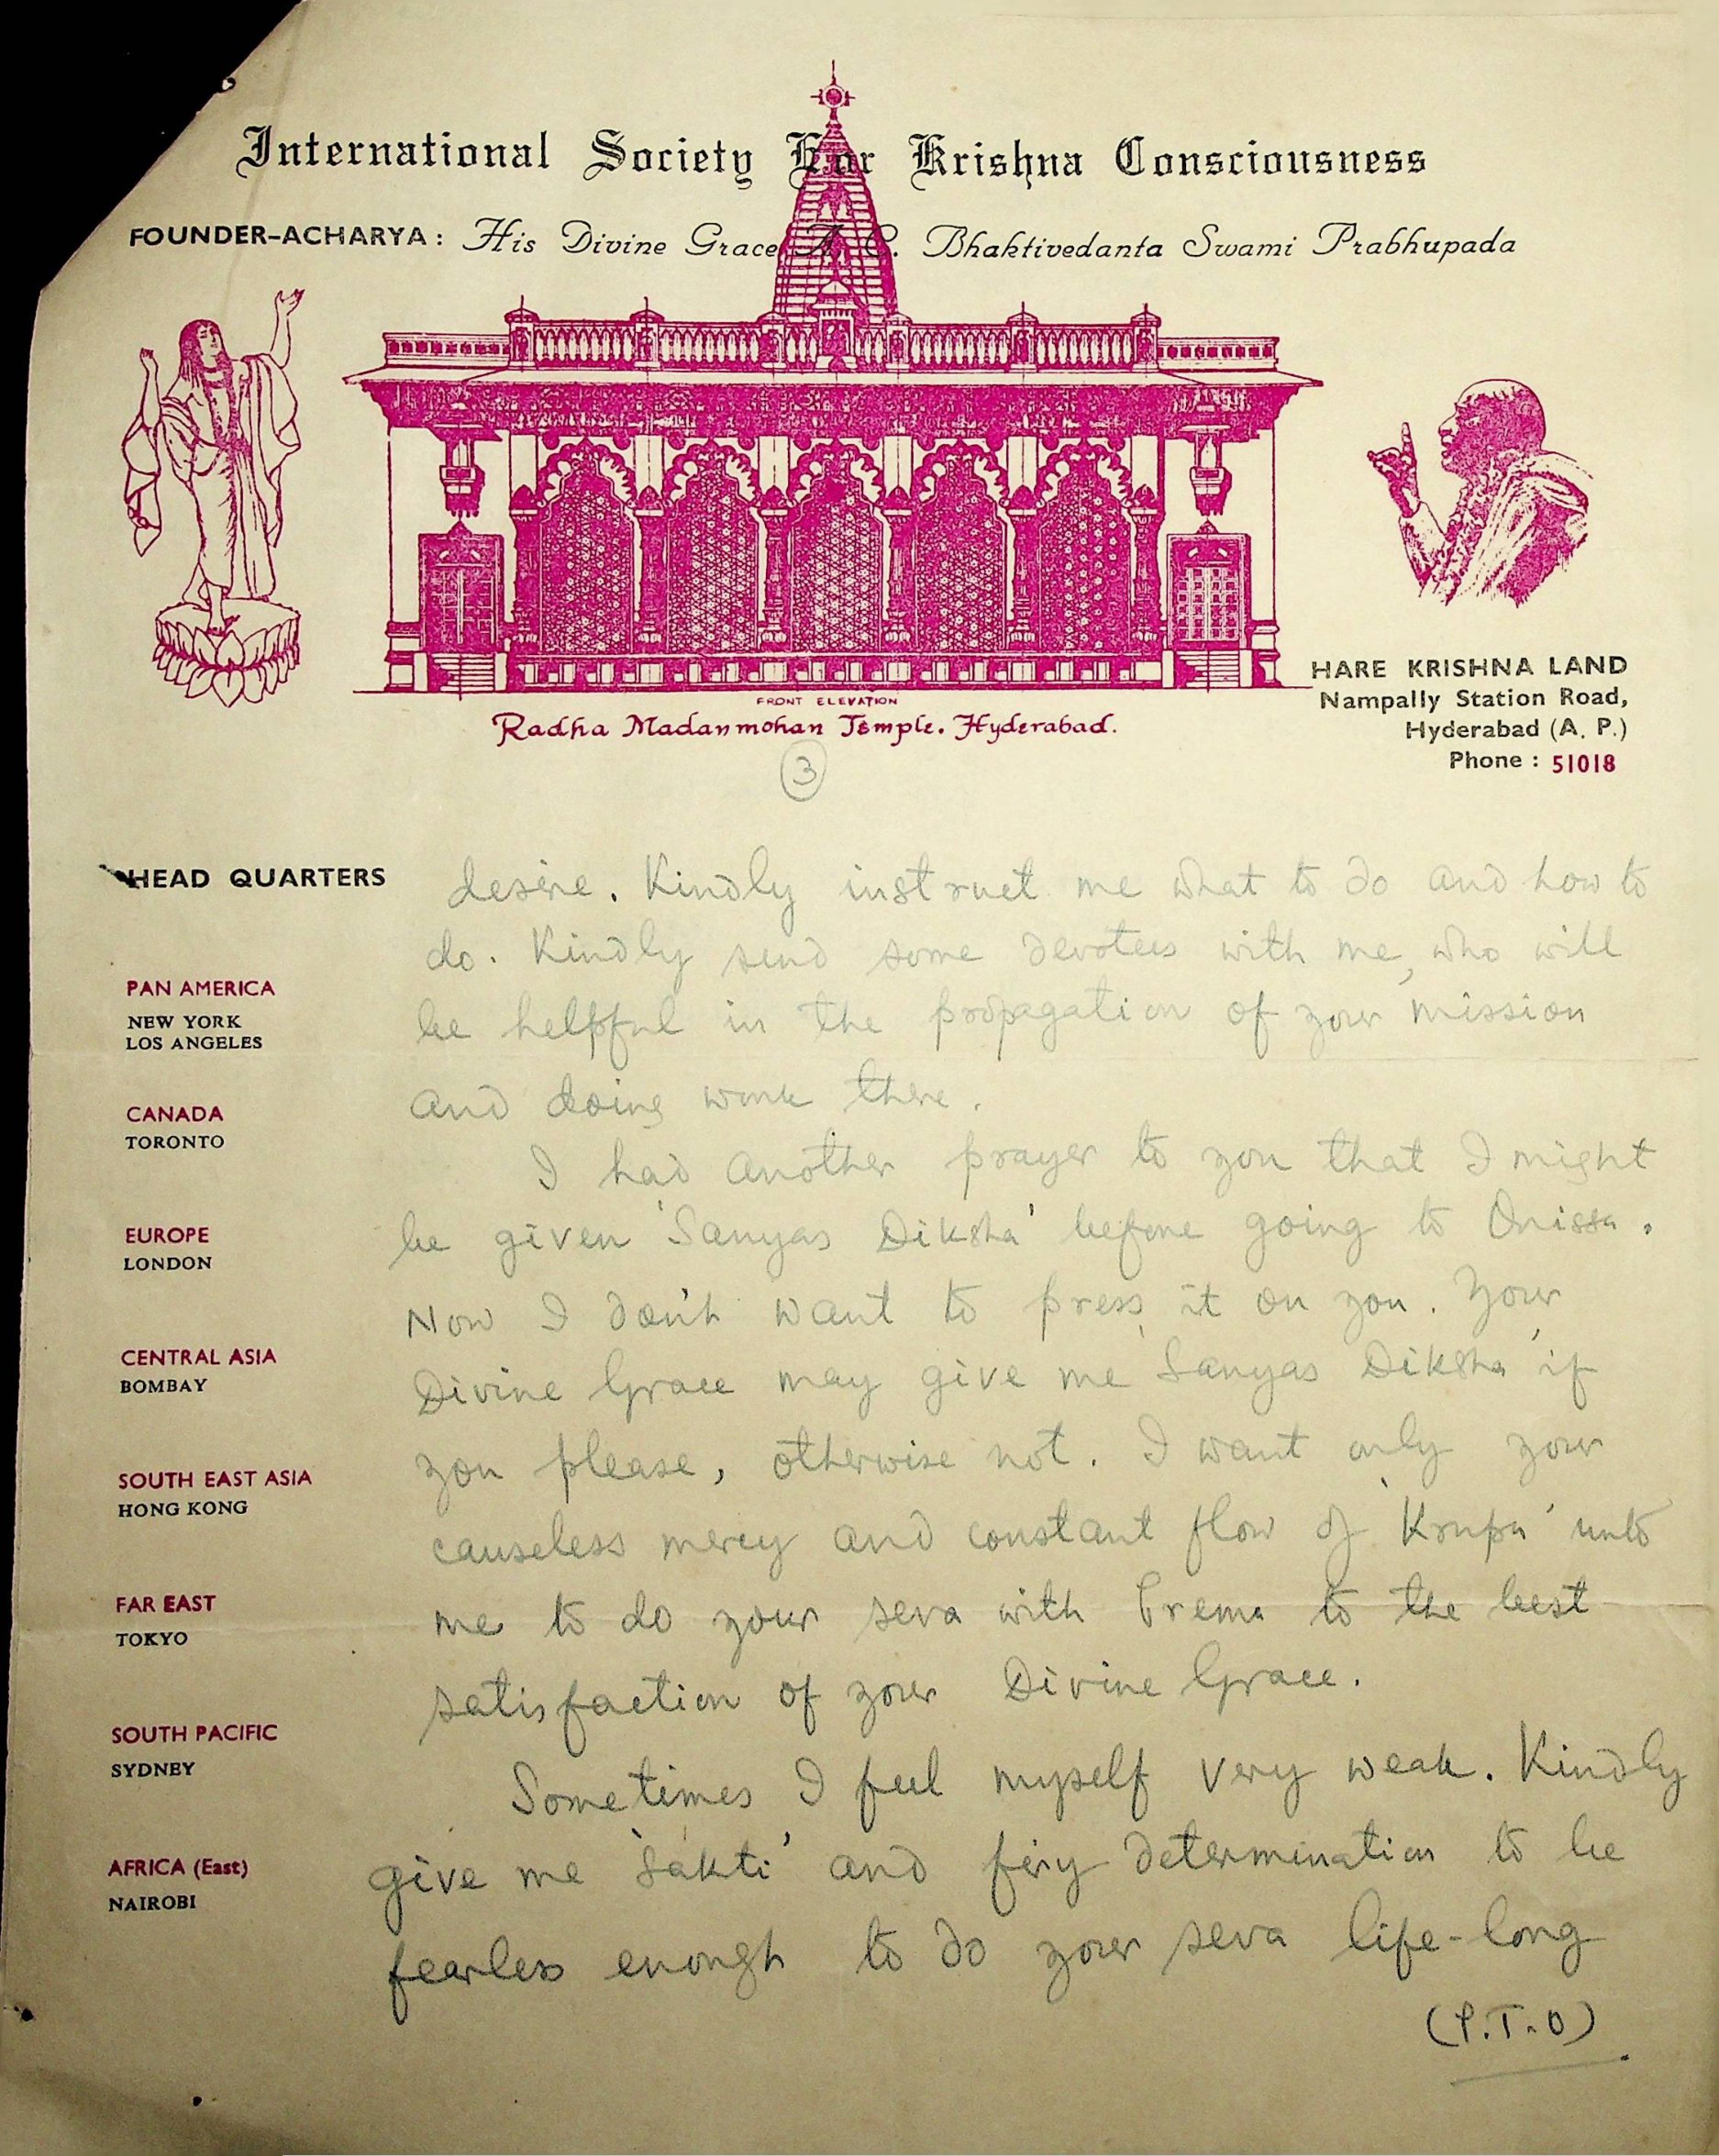 International Society For Krishna Consciousness
FOUNDER-ACHARYA: His Divine Grace A. C. Bhaktivedanta Swami Prabhupada
FRONT ELEVATION
Radha Madanmohan Temple. Hyderabad.
HARE KRISHNA LAND
Nampally Station Road,
Hyderabad (A. P.)
Phone : 51018
3
HEAD QUARTERS
PAN AMERICA
NEW YORK
LOS ANGELES
CANADA
TORONTO
EUROPE
LONDON
CENTRAL ASIA
BOMBAY
SOUTH EAST ASIA
HONG KONG
FAR EAST
TOKYO
SOUTH PACIFIC
SYDNEY
AFRICA (East)
NAIROBI
desire. Kindly instruct me what to do and how to
do. Kindly send some devotees with me, who will
be helpful in the propagation of your mission
and doing work there.
I had another prayer to you that I might
be given 'Sanyas Diksha' before going to Orissa.
Now I don't want to press it on you. Your
Divine Grace may give me 'Sanyas Diksha' if
you please, otherwise not. I want only your
causeless mercy and constant flow of 'Krupa' unto
me to do your seva with Prema to the best
satisfaction of your Divine Grace.
Sometimes I feel myself very weak. Kindly
give me 'Sakti' and firy determination to be
fearless enough to do your seva life-long
(P.T.O)